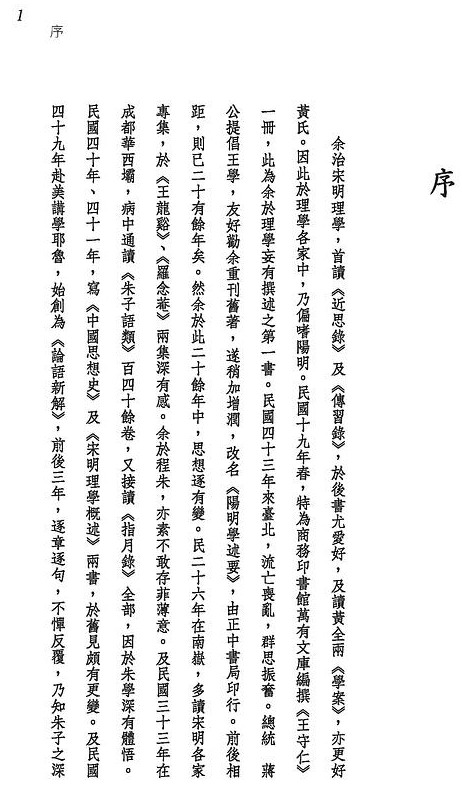 1
序
序
余治宋明理學，首讀《近思錄》及《傳習錄》，於後書尤愛好，及讀黃全兩《學案》，亦更好
黃氏。因此於理學各家中，乃偏嗜陽明。民國十九年春，特為商務印書館萬有文庫編撰《王守仁》
一冊，此為余於理學妄有撰述之第一書。民國四十三年來臺北，流亡喪亂，群思振奮。總統　蔣
公提倡王學，友好勸余重刊舊著，遂稍加增潤，改名《陽明學述要》，由正中書局印行。前後相
距，則已二十有餘年矣。然余於此二十餘年中，思想逐有變。民二十六年在南嶽，多讀宋明各家
專集，於《王龍谿》、《羅念菴》兩集深有感。余於程朱，亦素不敢存菲薄意。及民國三十三年在
成都華西壩，病中通讀《朱子語類》百四十餘卷，又接讀《指月錄》全部，因於朱學深有體悟。
民國四十年、四十一年，寫《中國思想史》及《宋明理學概述》兩書，於舊見頗有更變。及民國
四十九年赴美講學耶魯，始創為《論語新解》，前後三年，逐章逐句，不憚反覆，乃知朱子之深